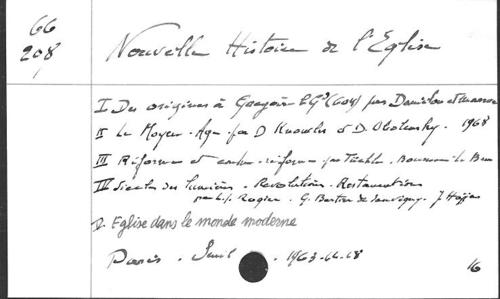 66
208
Nouvelle Histoire de l'Eglise
I Des origines à Grégoire (604) par Danielou et Marrou
II Le Moyen-Age par D Knowles et D. Obolensky. 1968
III Réforme et contre-réforme par Tüchle. Bouman. Le Brun
IV Siècle des lumières. Révolutions. Restaurations
par L.J. Rogier. G. Bertier de Sauvigny. J Hajjar
5. Eglise dans le monde moderne
Paris. Seuil. 1963-66-68
16